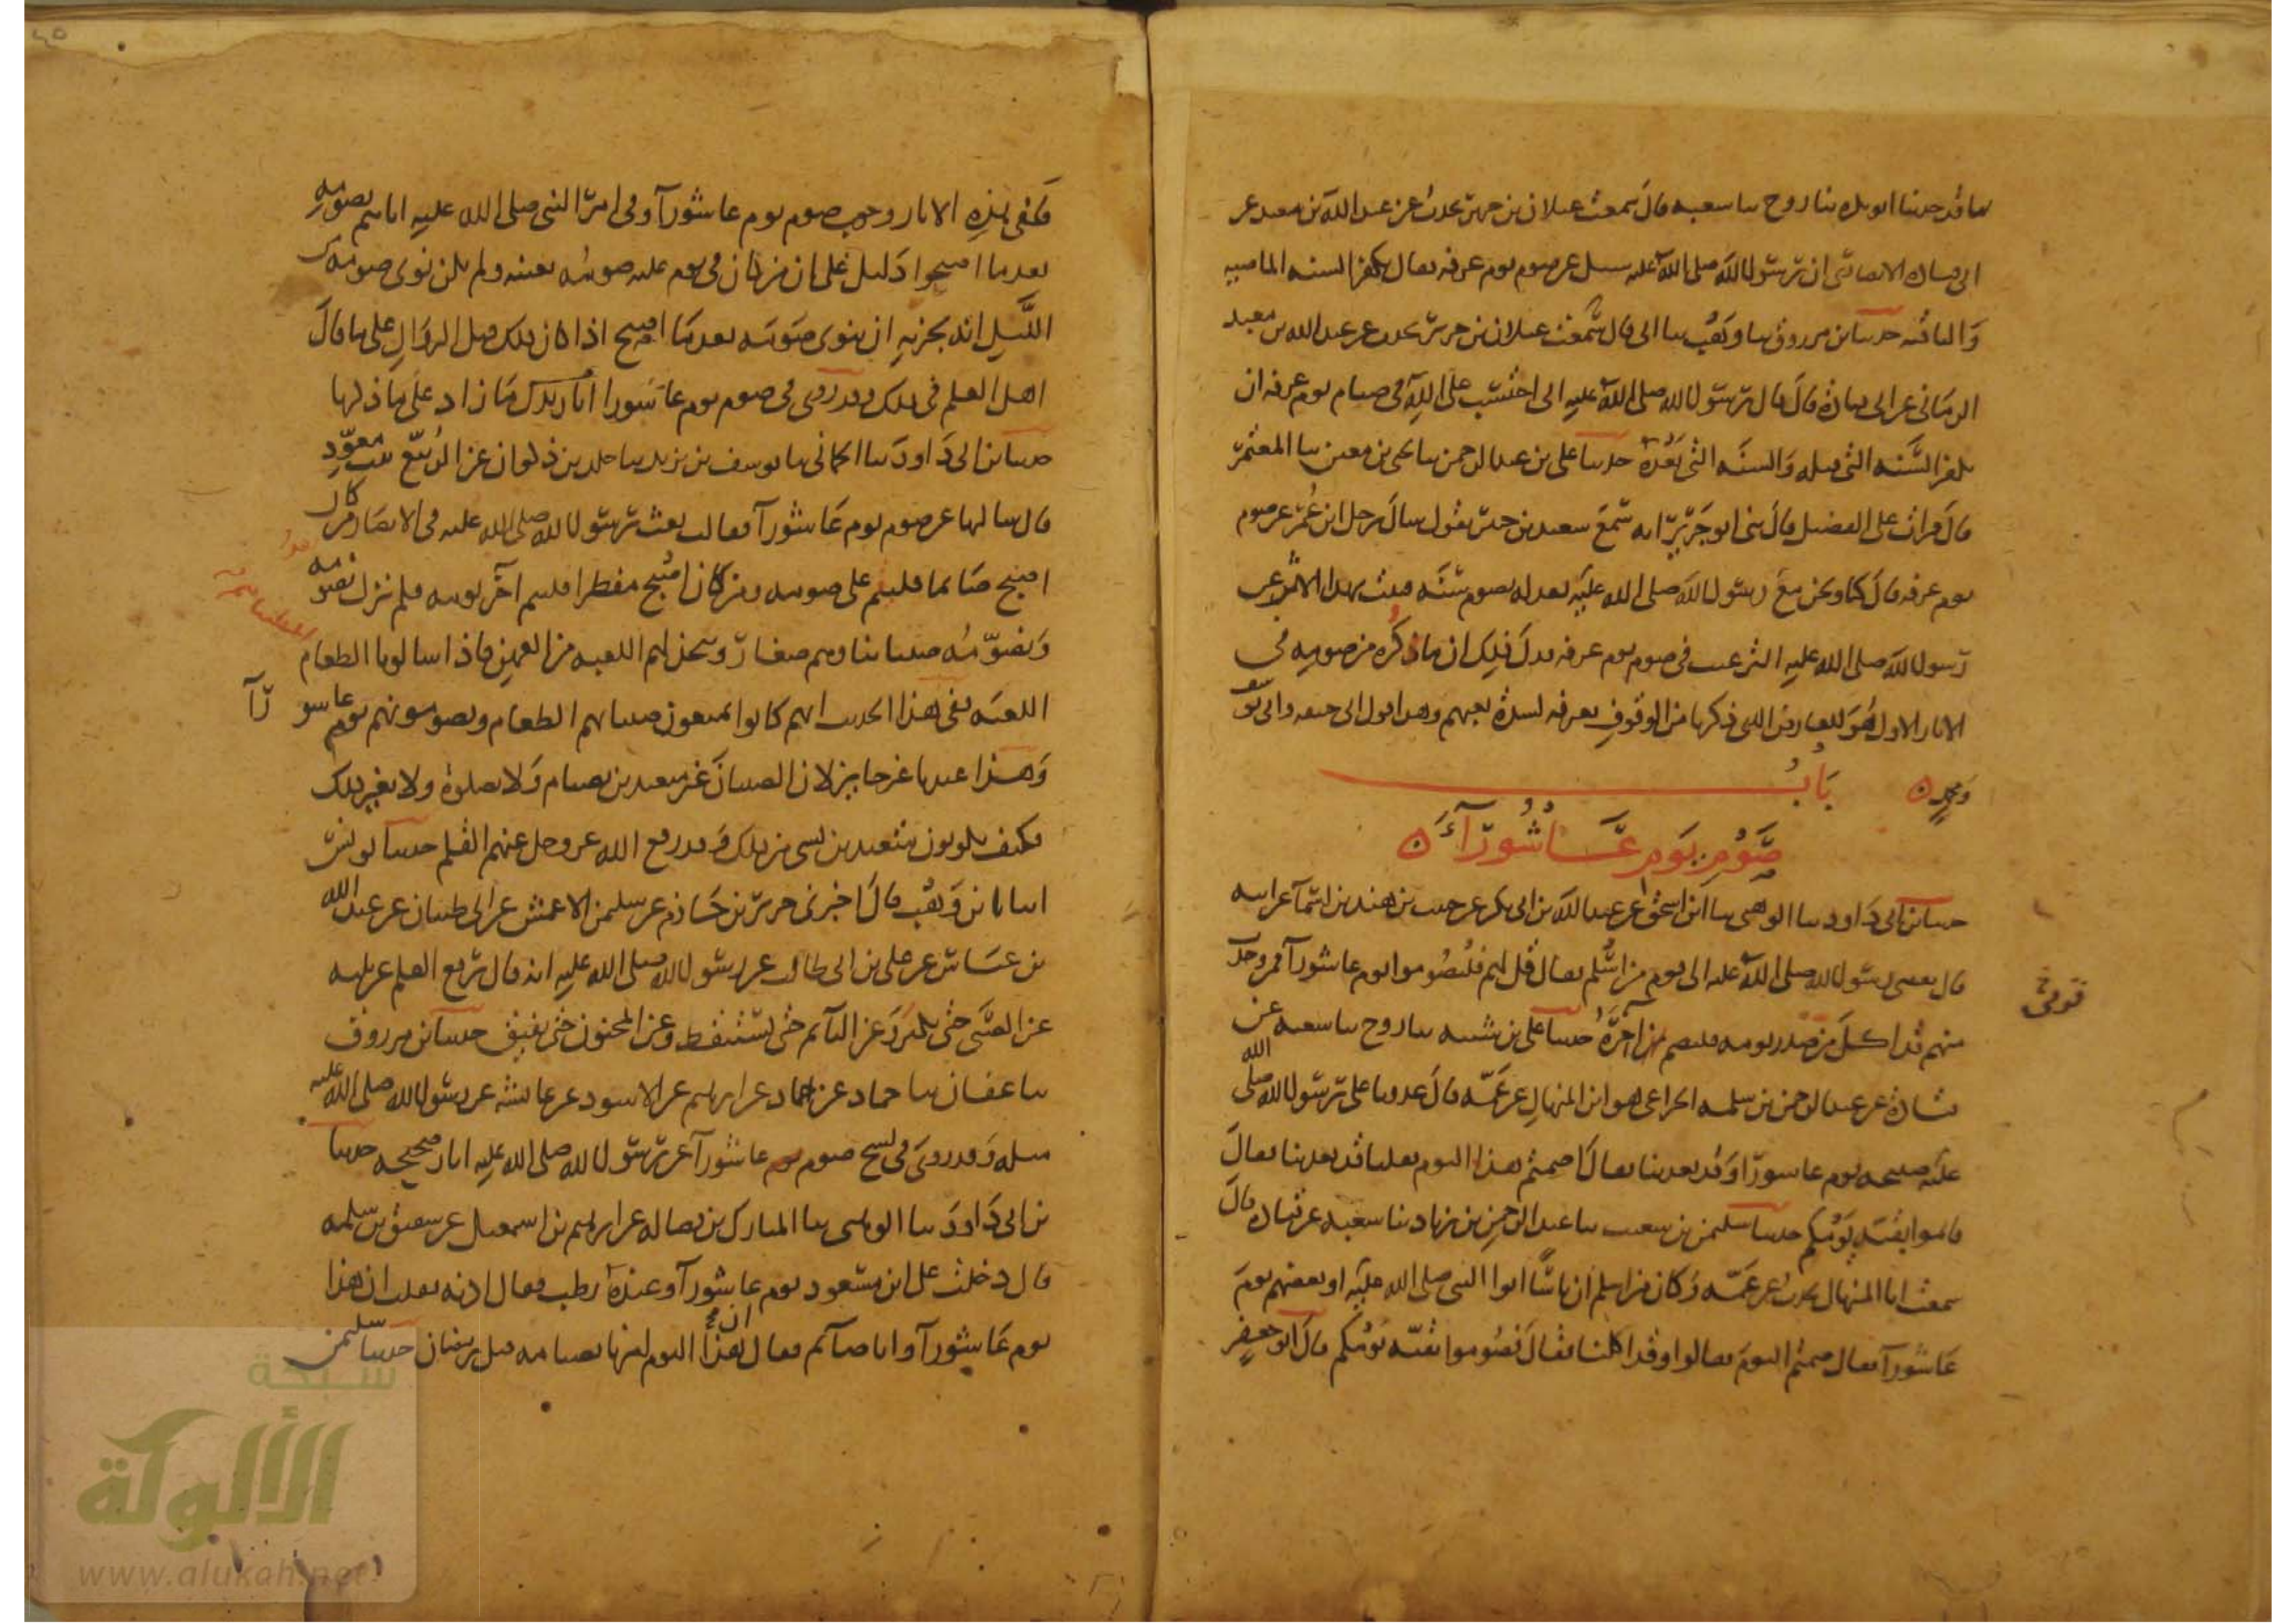 ما قد حدثنا ابو بكره ثنا روح ثنا شعبه قال سمعت غيلان بن جرير يحدث عن عبد الله بن معبد عن
ابي قتاده الانصاري ان رسول الله صلى الله عليه سئل عن صوم يوم عرفه فقال يكفر السنه الماضيه
والباقيه حدثنا بن مرزوق ثنا وهب ثنا ابي قال سمعت غيلان بن جرير يحدث عن عبد الله بن معبد
الزماني عن ابي قتادة قال قال رسول الله صلى الله عليه اني احتسب على الله في صيام يوم عرفه ان
يكفر السنه التي قبله والسنه التي بعده حدثنا علي بن عبد الرحمن ثنا يحيى بن معين ثنا المعتمر
قال قرات على الفضيل قال ثني ابو حريز انه سمع سعيد بن جبير يقول سال رجل ابن عمر عن صوم
يوم عرفه قال كنا ونحن مع رسول الله صلى الله عليه نعدله بصوم سنه فثبت بهذا الاثر عن
رسول الله صلى الله عليه الترغيب في صوم يوم عرفه فدل ذلك ان ما ذكره من صومه في
الاثار الاول هو للعارض الذي ذكرنا من الوقوف بعرفه لشدة تعبهم وهذا قول ابي حنيفه وابي يوسف
ومحمد ه باب
صوم يوم عاشورآء ه
حدثنا بن ابي داود ثنا الوهبي ثنا ابن اسحق عن عبد الله بن ابي بكر عن حبيب بن هند بن اسمآ عن ابيه
قال بعثني رسول الله صلى الله عليه الى قوم من اسلم فقال قل لهم فليصوموا يوم عاشورآ فمن وجدت
قومي خ
منهم قد اكل من صدر يومه فليصم اخره حدثنا علي بن شيبه ثنا روح ثنا شعبه عن
قتادة عن عبد الرحمن بن سلمه الخزاعي هو ابن المنهال عن عمه قال غدونا على رسول الله صلى الله
عليه صبيحه يوم عاشورا وقد تغدينا فقال اصمتم هذا اليوم فقلنا قد تغدينا فقال
فاتموا بقيه يومكم حدثنا سليمن بن شعيب ثنا عبد الرحمن بن زياد ثنا شعبه عن قتاده قال
سمعت ابا المنهال يحدث عن عمه وكان من اسلم ان ناسا اتوا النبي صلى الله عليه او بعضهم يوم
عاشورآ فقال صمتم اليوم فقالوا لا وقد اكلنا فقال فصوموا بقيه يومكم قال ابو جعفر
ففي هذه الاثار وجوب صوم يوم عاشورآ وفي امر النبي صلى الله عليه اياهم بصومه
بعد ما اصبحوا دليل على ان من كان في يوم عليه صومه بعينه ولم يكن نوى صومه من
الليل انه يجزيه ان ينوي صومه بعد ما اصبح اذا كان ذلك قبل الزوال على ما قال
اهل العلم في ذلك وقد روي في صوم يوم عاشورا اثار بذلك ما زاد على ما ذكرنا
حدثنا بن ابي داود ثنا الحماني ثنا يوسف بن يزيد ثنا خلد بن ذكوان عن الربيع بنت معوذ
قال سالها عن صوم يوم عاشورآ فقالت بعث رسول الله صلى الله عليه في الانصار من كان
اصبح صائما فليتم على صومه ومن كان اصبح مفطرا فليتم آخر يومه فلم نزل نصومه
ونصومه صبياننا وهم صغار ونتخذ لهم اللعبه من العهن فاذا سالونا الطعام
اللعبه ففي هذا الحديث انهم كانوا يمنعون صبيانهم الطعام ويصومونهم يوم عاشورآ
وهذا عندنا غير جايز لان الصبيان غير متعبدين بصيام ولا بصلوة ولا بغير ذلك
فكيف يكونون متعبدين بشي من ذلك وقد رفع الله عز وجل عنهم القلم حدثنا يونس
انبانا بن وهب قال اخبرني جرير بن حازم عن سليمن الاعمش عن ابي ظبيان عن عبد الله
بن عباس عن علي بن ابي طالب عن رسول الله صلى الله عليه انه قال رفع القلم عن ثلثه
عن الصبي حتى يكبر وعن النآئم حتى يستيقظ وعن المجنون حتى يفيق حدثنا بن مرزوق
ثنا عفان ثنا حماد عن حماد عن ابرهيم عن الاسود عن عائشه عن رسول الله صلى الله عليه
مثله وقد روي في نسخ صوم يوم عاشورآ عن رسول الله صلى الله عليه اثار صحيحه حدثنا
بن ابي داود ثنا الوهبي ثنا المبارك بن فضاله عن ابرهيم بن اسمعيل عن شقيق بن سلمه
قال دخلت على ابن مسعود يوم عاشورآ وعنده رطب فقال ادنه فقلت ان هذا
يوم عاشورآ وانا صآئم فقال ان هذا اليوم امرنا بصيامه قبل رمضان حدثنا سليمن
شبكة
الألوكة
www.alukah.net